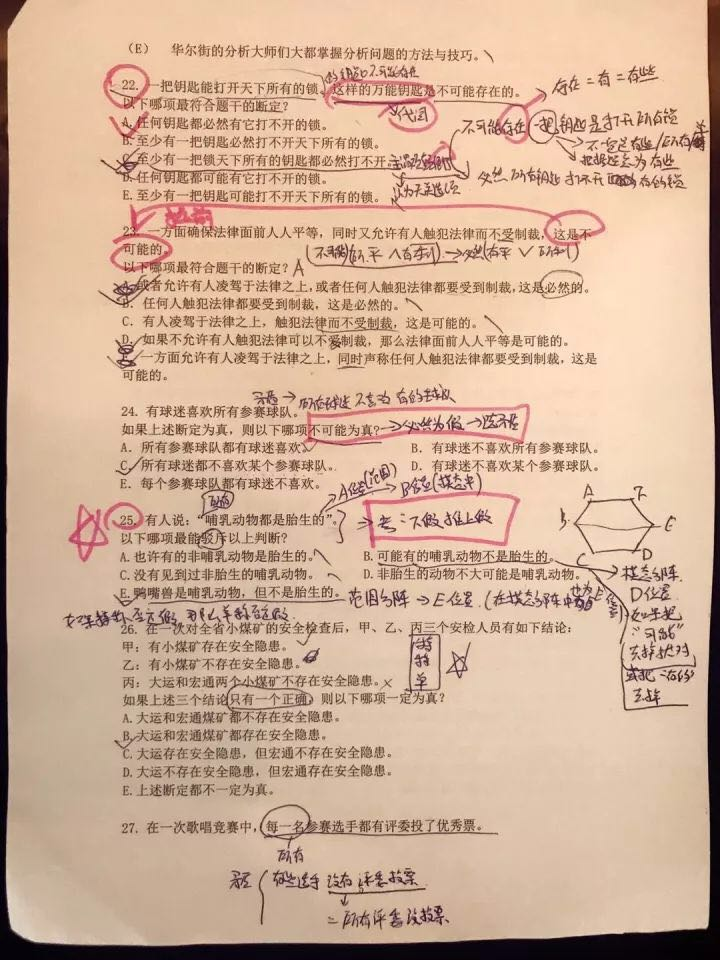 （E） 华尔街的分析大师们大都掌握分析问题的方法与技巧。
22. 一把钥匙能打开天下所有的锁，这样的万能钥匙是不可能存在的。
存在=有=有些
以下哪项最符合题干的断定？
代词
A.任何钥匙都必然有它打不开的锁。
不可能存在一把钥匙是打开所有锁
B.至少有一把钥匙必然打不开天下所有的锁。
C.至少有一把锁天下所有的钥匙都必然打不开
D.任何钥匙都可能有它打不开的锁。
E.至少有一把钥匙可能打不开天下所有的锁。
23. 一方面确保法律面前人人平等，同时又允许有人触犯法律而不受制裁，这是不
可能的。
以下哪项最符合题干的断定？A
A. 或者允许有人凌驾于法律之上，或者任何人触犯法律都要受到制裁，这是必然的。
B. 任何人触犯法律都要受到制裁，这是必然的。
C. 有人凌驾于法律之上，触犯法律而不受制裁，这是可能的。
D. 如果不允许有人触犯法律可以不受制裁，那么法律面前人人平等是可能的。
E. 一方面允许有人凌驾于法律之上，同时声称任何人触犯法律都要受到制裁，这是
可能的。
矛盾→所有球迷不喜欢有的球队
24. 有球迷喜欢所有参赛球队。
如果上述断定为真，则以下哪项不可能为真？→必然为假→选矛盾
A. 所有参赛球队都有球迷喜欢。 B. 有球迷不喜欢所有参赛球队。
C. 所有球迷都不喜欢某个参赛球队。 D. 有球迷不喜欢某个参赛球队。
E. 每个参赛球队都有球迷不喜欢。
所有
A位置(范围)
B位置(模态中)
25. 有人说：“哺乳动物都是胎生的”。
以下哪项最能驳斥以上判断？
A.也许有的非哺乳动物是胎生的。 B.可能有的哺乳动物不是胎生的。
C.没有见到过非胎生的哺乳动物。 D.非胎生的动物不大可能是哺乳动物。
E.鸭嘴兽是哺乳动物，但不是胎生的。
A F
B E
C D
D位置
如果把
“可能”
去掉
26. 在一次对全省小煤矿的安全检查后，甲、乙、丙三个安检人员有如下结论：
甲：有小煤矿存在安全隐患。
乙：有小煤矿不存在安全隐患。
丙：大运和宏通两个小煤矿不存在安全隐患。
特
特
单
如果上述三个结论只有一个正确，则以下哪项一定为真？
A.大运和宏通煤矿都不存在安全隐患。
B.大运和宏通煤矿都存在安全隐患。
C.大运存在安全隐患，但宏通不存在安全隐患。
D.大运不存在安全隐患，但宏通存在安全隐患。
E.上述断定都不一定为真。
27. 在一次歌唱竞赛中，每一名参赛选手都有评委投了优秀票。
所有
矛盾 有些选手没有评委投票
=所有评委没投票